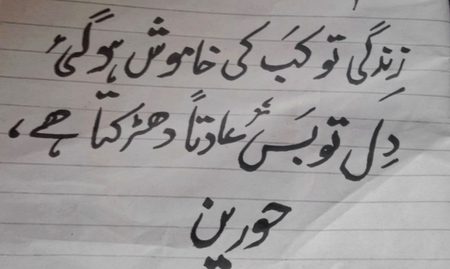 زِندگی تو کبَ کی خاموش ہوگئ
دِل تو بَس عادتاً دھڑکتا ہے،
حورین